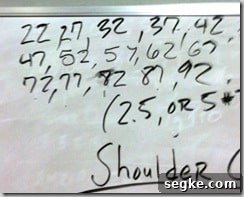 22 27, 32, 37, 42,
47, 52, 57, 62 67
72, 77, 82 87, 92.
(2.5, OR 5#
Shoulder (
segke.com